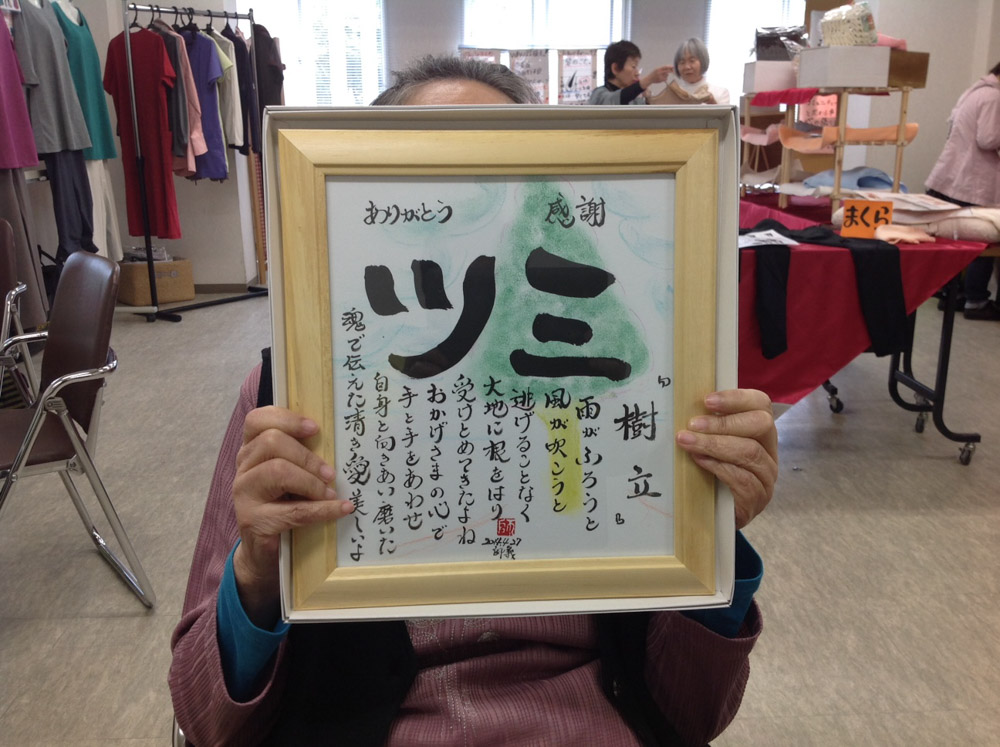 ありがとう 感謝
ミツ
『樹立』
雨がふろうと
風が吹こうと
逃げることなく
大地に根をはり
受けとめてきたよね
おかげさまの心で
手と手をあわせ
自身と向きあい磨いた
魂で伝えた清き愛美しいよ
2014.4.27
まくら